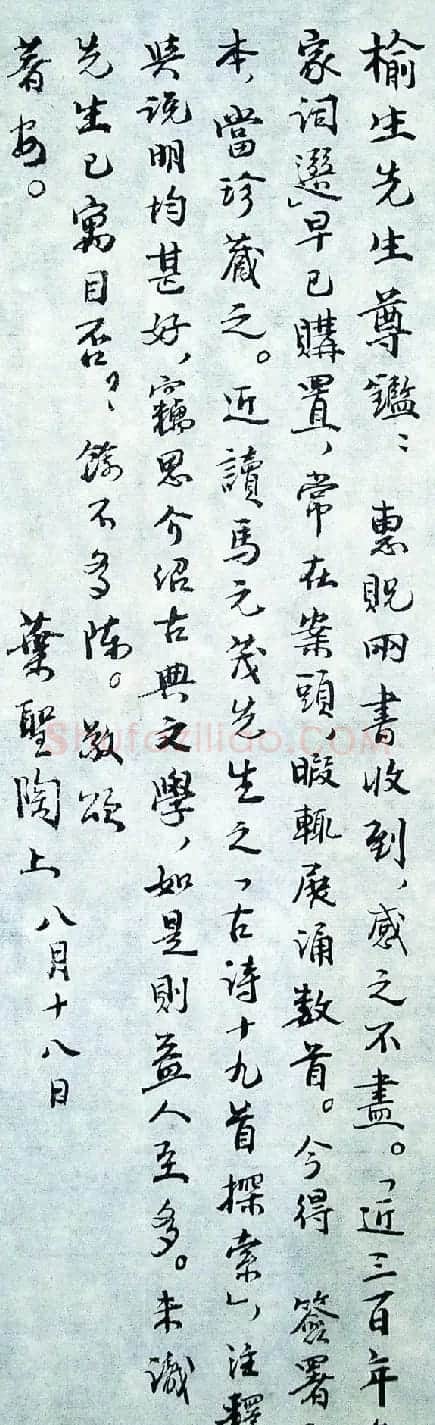 榆生先生尊鑑：惠貺兩書收到，感之不盡。「近三百年
家詞選」早已購置，常在案頭，暇輒展誦數首。今得 簽署
本，當珍藏之。近讀馬元茂先生之「古诗十九首探索」，注釋
與说明均甚好，竊思介绍古典文學，如是則益人至多。未識
先生已寓目否？餘不多陳。敬頌
著安。
葉聖陶上 八月十八日
Shufaziliao.COM